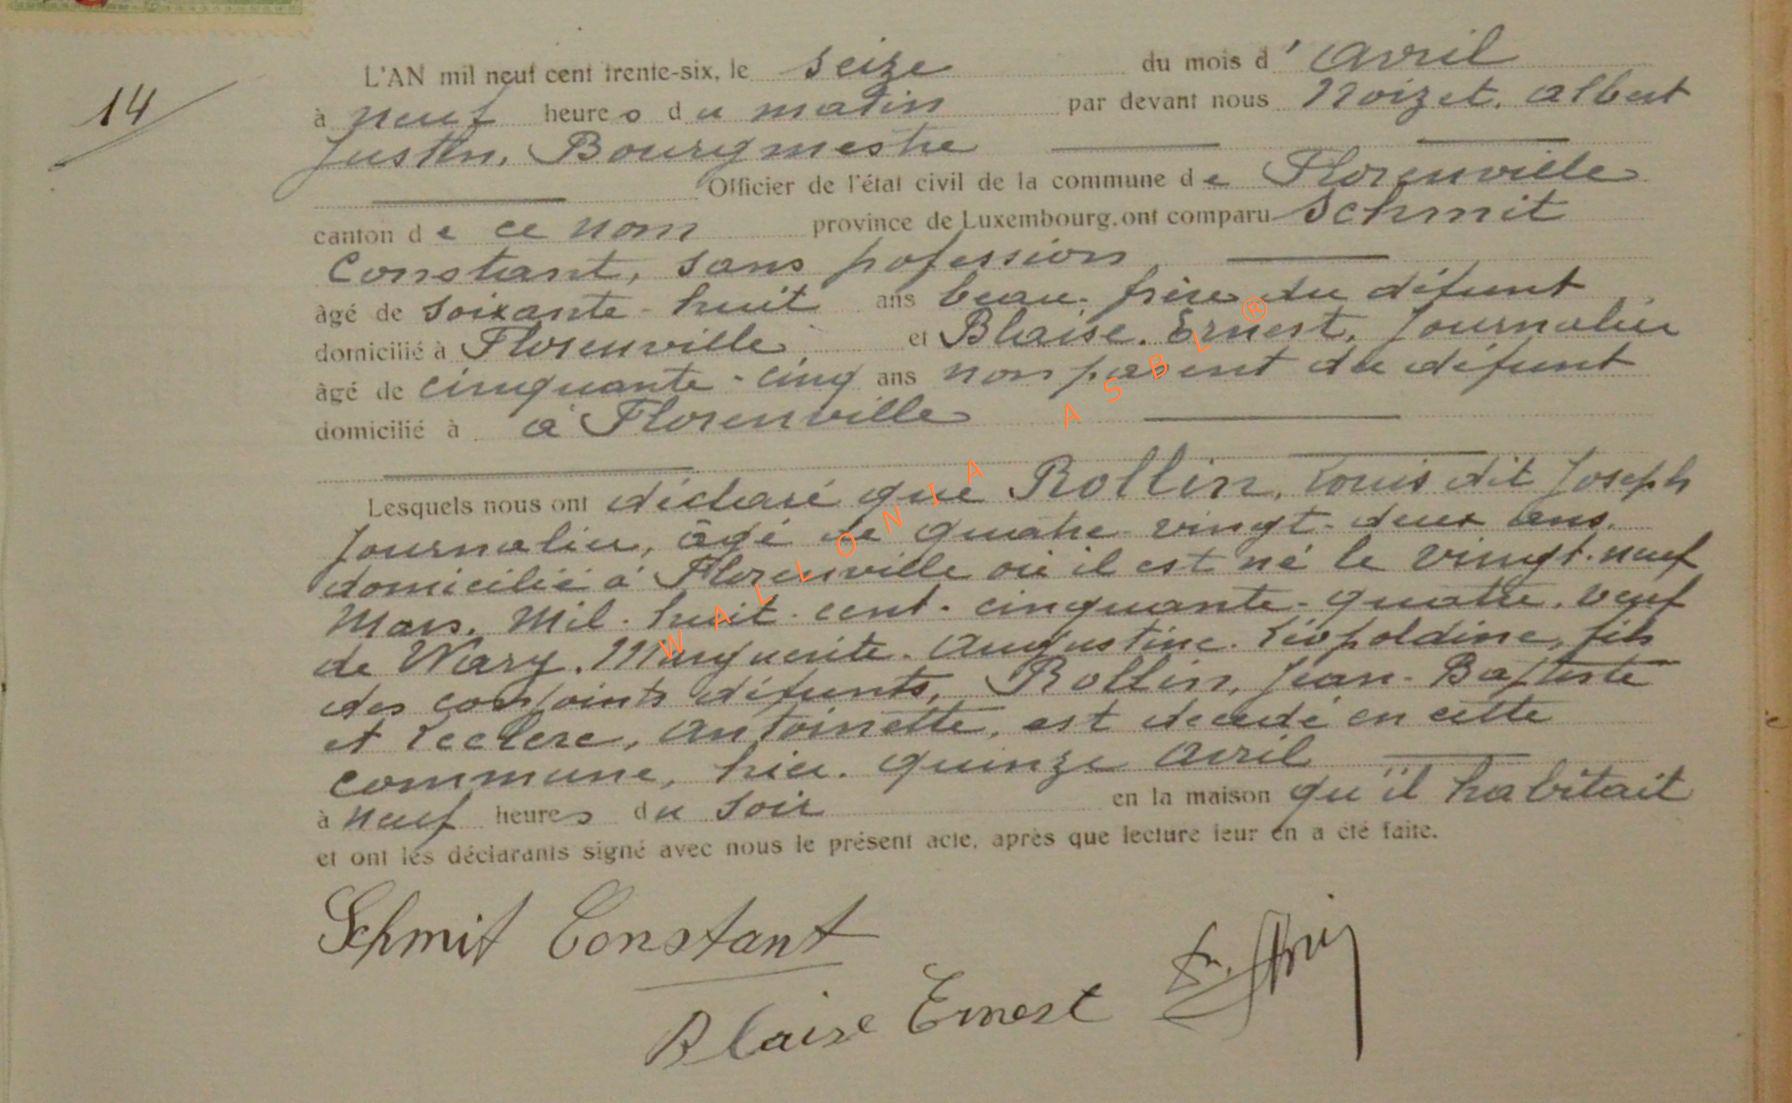 14
L'AN mil neuf cent trente-six, le seize du mois d' avril
à neuf heures du matin par devant nous Noizet. Albert
Justin. Bourgmestre
Officier de l'état civil de la commune de Florenville
canton de ce nom province de Luxembourg. ont comparu Schmit
Constant, sans pofession
âgé de soixante-huit ans beau-frère du défunt
domicilié à Florenville et Blaise. Ernest, Journalier
âgé de cinquante-cinq ans non parent du défunt
domicilié à à Florenville
Lesquels nous ont déclaré que Rollin, Louis dit Joseph
Journalier, âgé de quatre-vingt-deux ans.
domicilié à Florenville où il est né le vingt-neuf
Mars. Mil-huit-cent-cinquante-quatre. veuf
de Wary. Marguerite. Augustine. Léopoldine, fils
des conjoints défunts, Rollin, Jean-Baptiste
et Leclere, Antoinette, est décédé en cette
commune, hier. quinze avril
à neuf heures du soir en la maison qu'il habitait
et ont les déclarants signé avec nous le présent acte, après que lecture leur en a été faite.
Schmit Constant
Blaise Ernest
WALLONIA ASBL ®